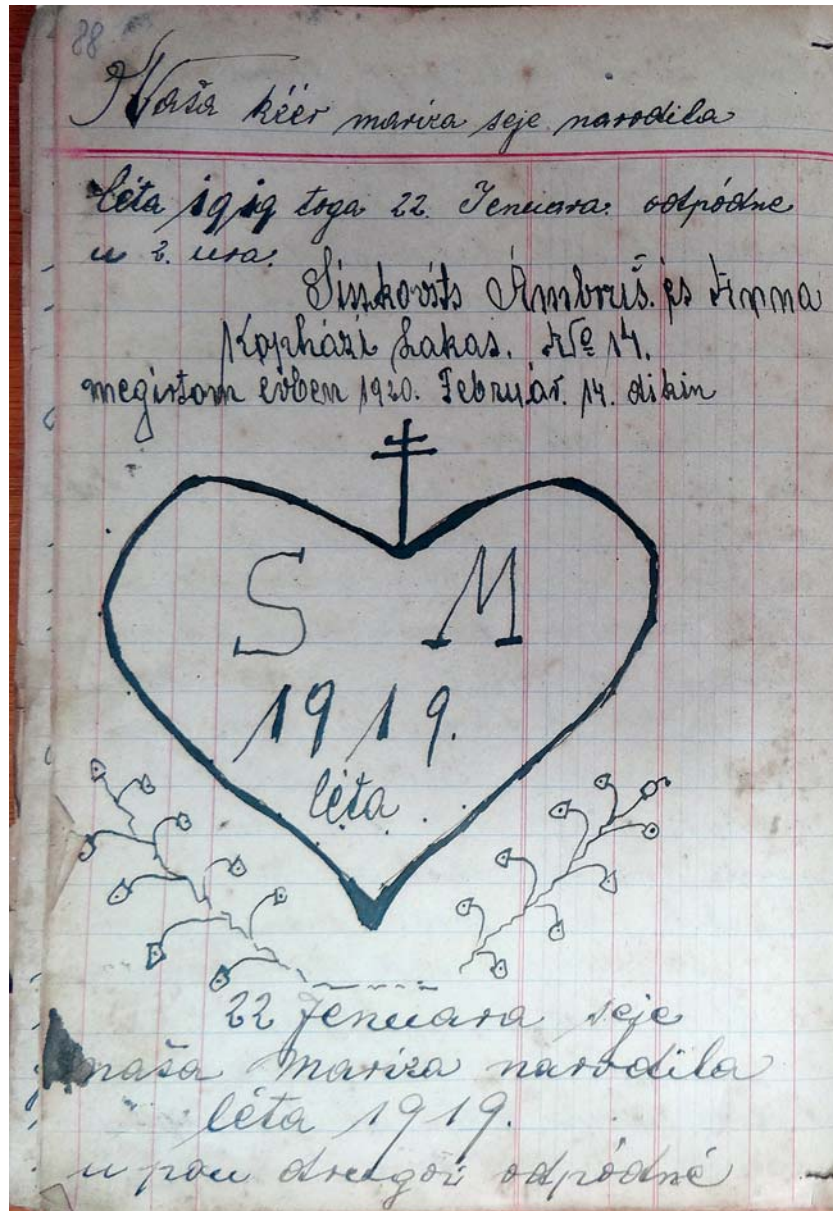 88
Naša kćér mariza seje narodila
léta 1919 toga 22. Jenuara. odpódne
u 2. ura.
Sinkovits Ámbruš. js Anna
Kópházi Lakas. No 14.
megirtam evben 1920. Február. 14. dikin
S M
1919.
léta
22 Jenuara seje
naša mariza narodila
léta 1919.
u pou drugoi odpódné